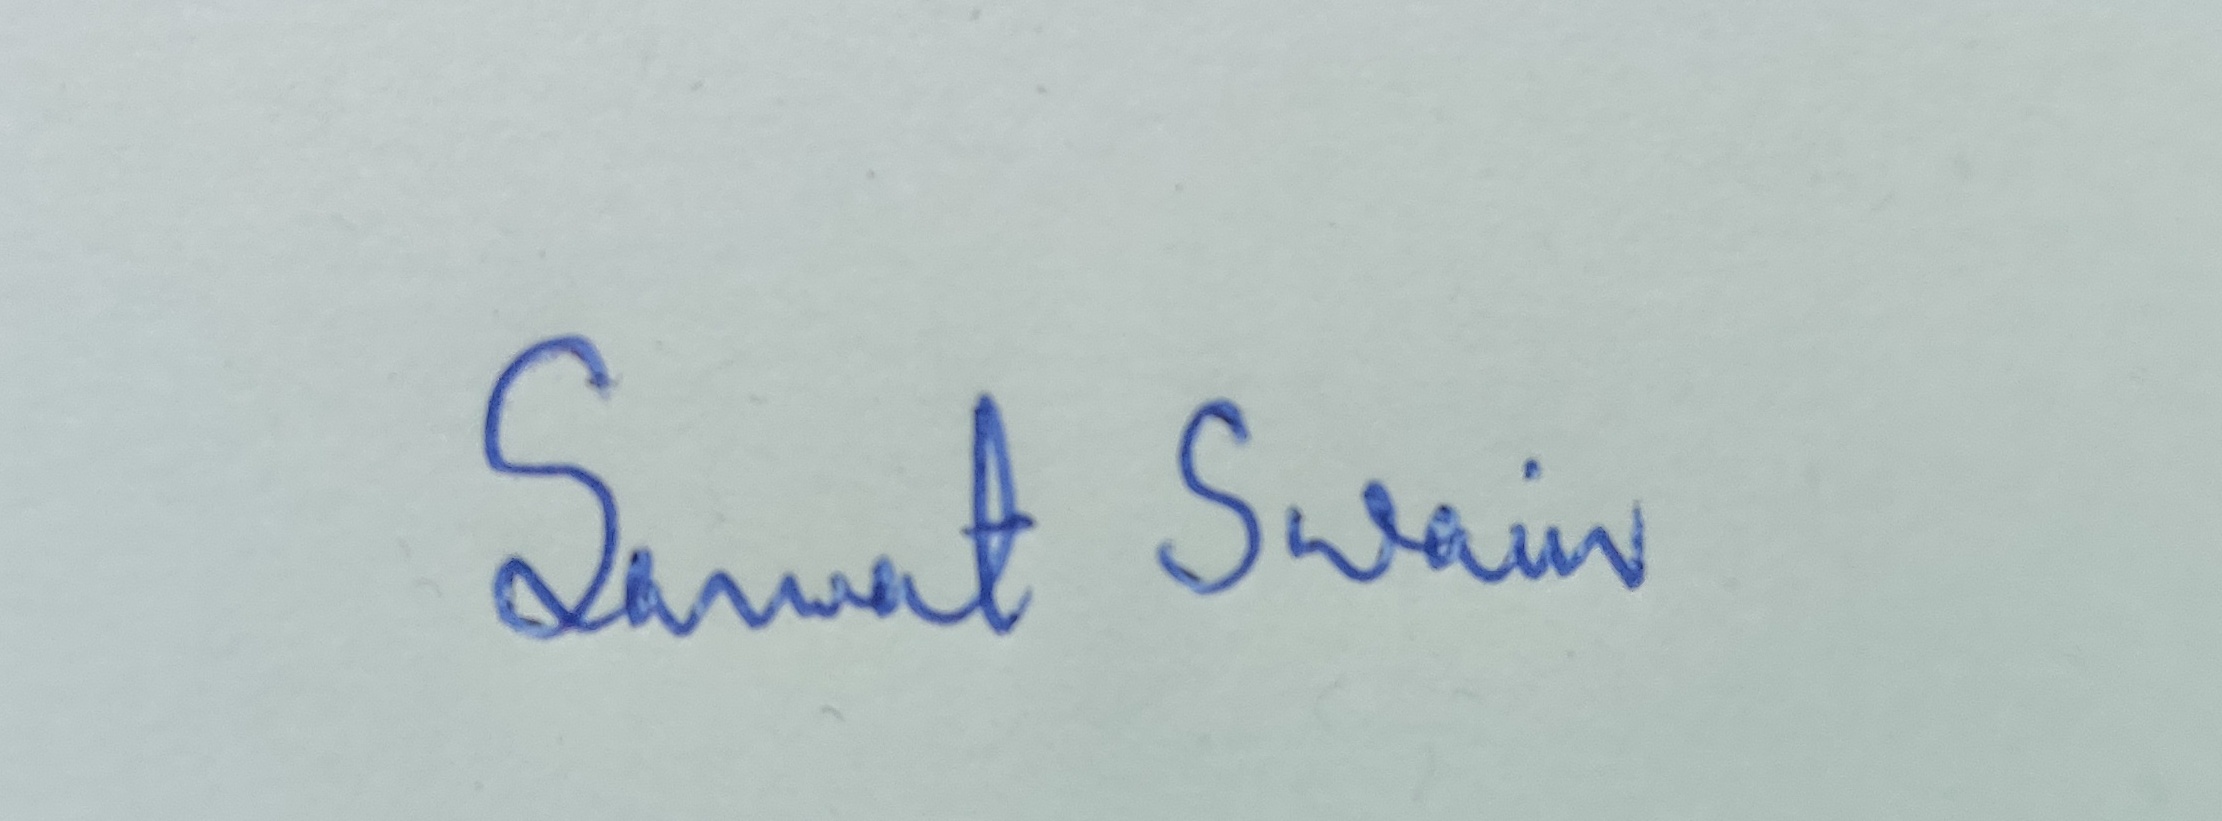 Sanat Swain